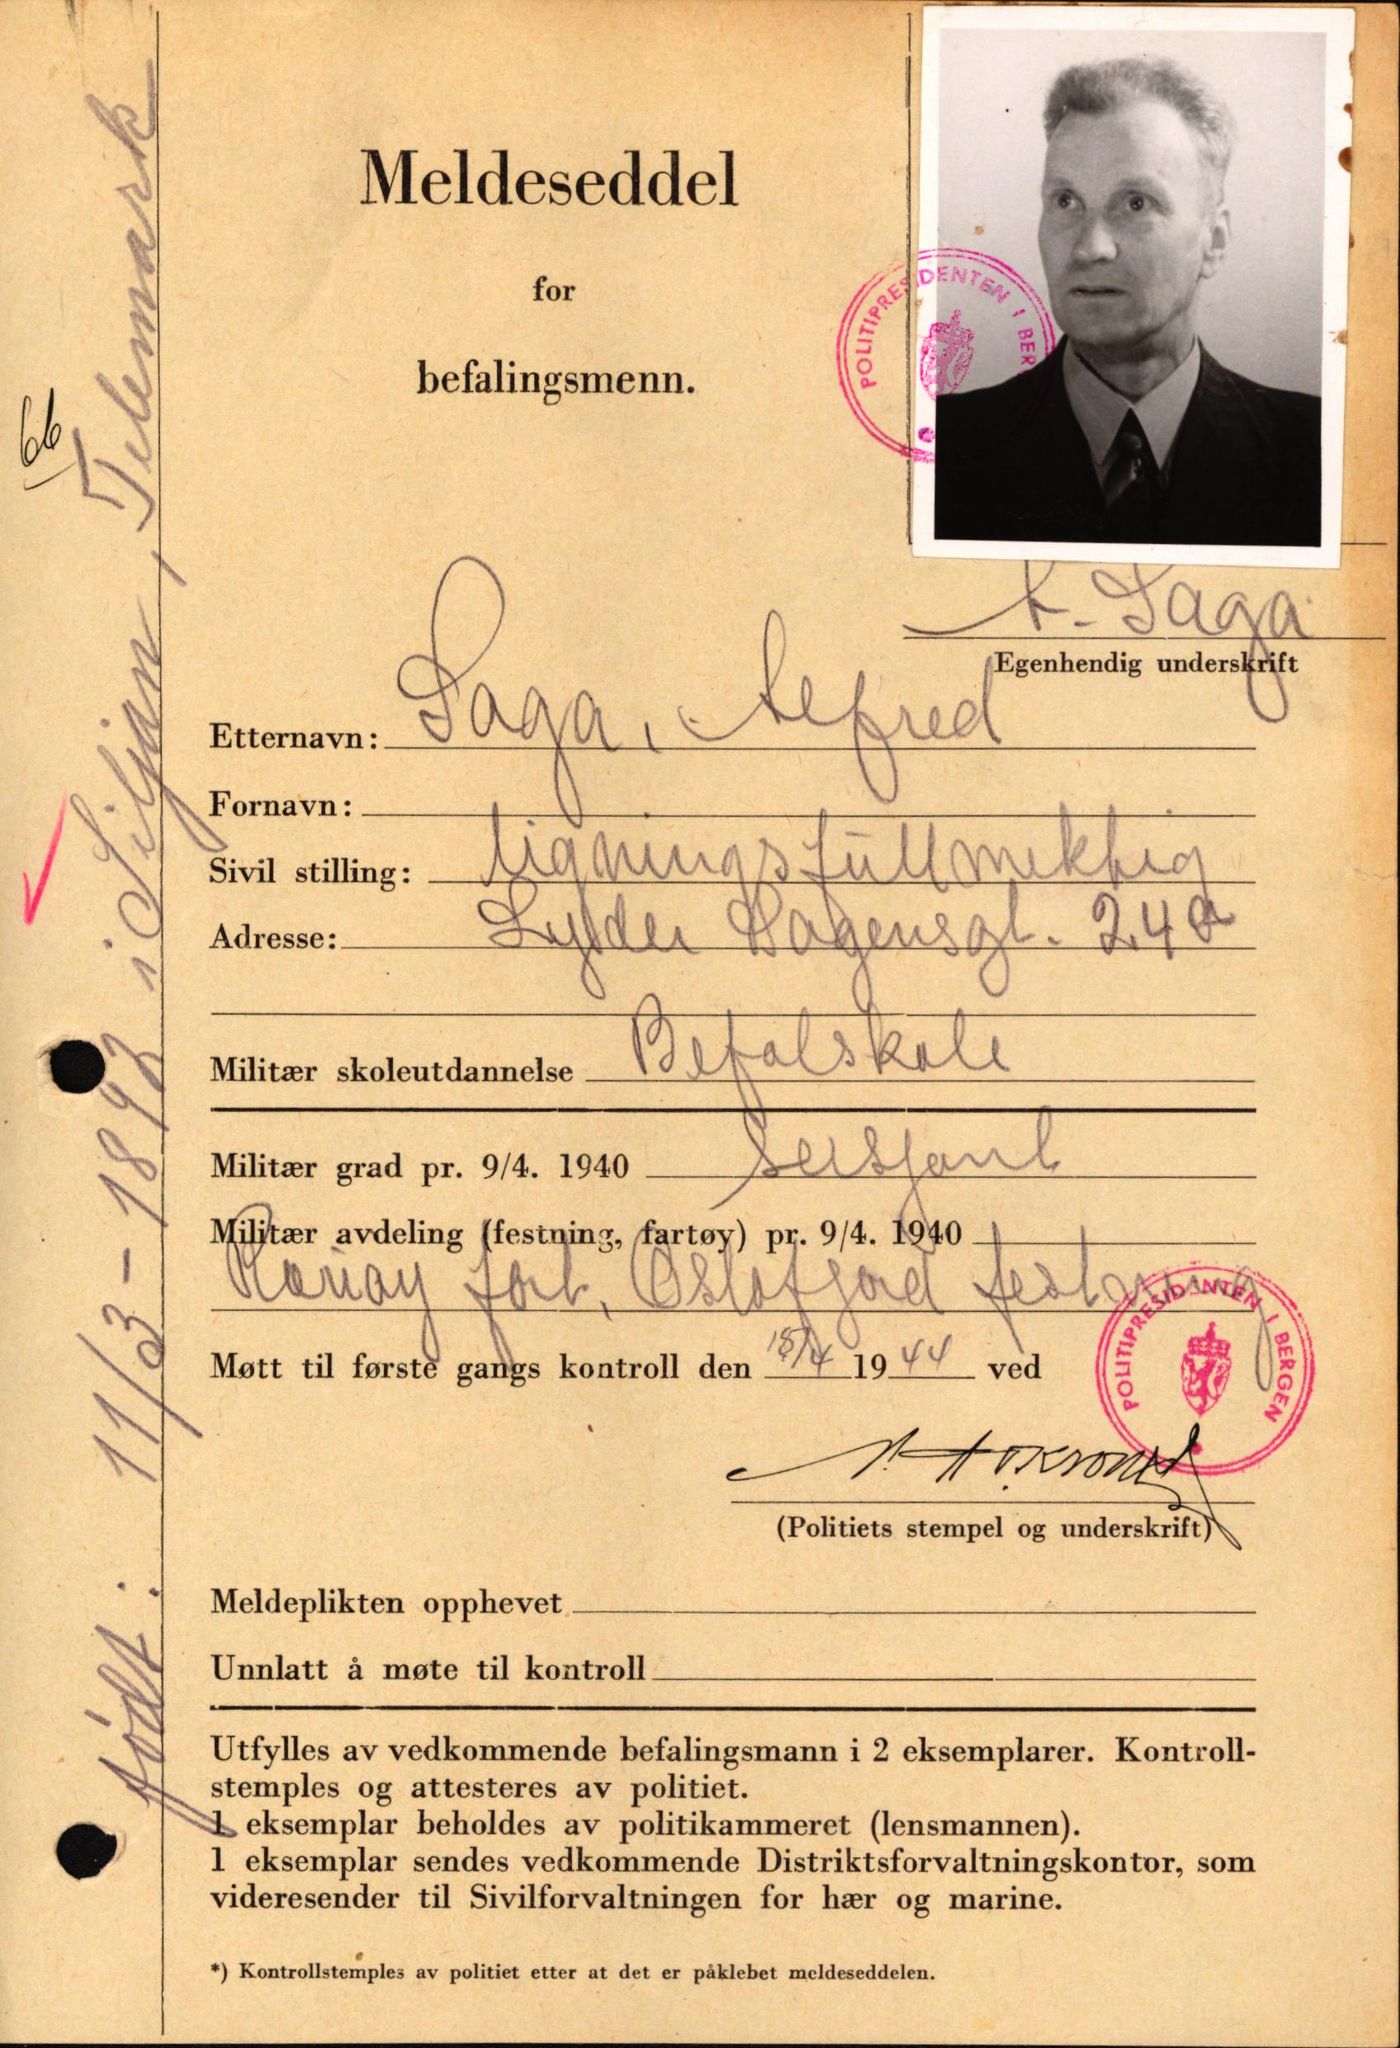 Meldeseddel
for
befalingsmenn.
POLITIPRESIDENTEN I BER
A. Saga
Egenhendig underskrift
Etternavn: Saga, Alfred
Fornavn:
Sivil stilling: ligningsfullmektig
Adresse: Lyder Sagensgt. 24a
Militær skoleutdannelse Befalskole
Militær grad pr. 9/4. 1940 Sersjant
Militær avdeling (festning, fartøy) pr. 9/4. 1940
Rauøy fort, Oslofjord festning
Møtt til første gangs kontroll den 15/4 1944 ved
POLITIPRESIDENTEN I BERGEN
(Politiets stempel og underskrift)
Meldeplikten opphevet
Unnlatt å møte til kontroll
Utfylles av vedkommende befalingsmann i 2 eksemplarer. Kontroll-
stemples og attesteres av politiet.
1 eksemplar beholdes av politikammeret (lensmannen).
1 eksemplar sendes vedkommende Distriktsforvaltningskontor, som
videresender til Sivilforvaltningen for hær og marine.
*) Kontrollstemples av politiet etter at det er påklebet meldeseddelen.
født: 11/3-1893 i Siljan, Telemark
66